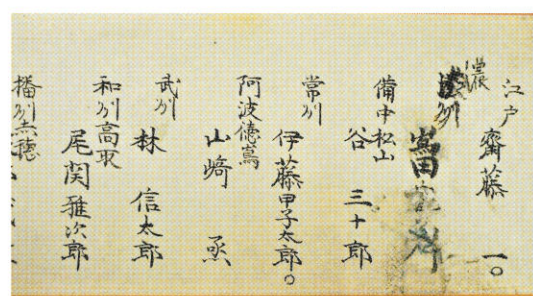 江戸
齋藤 一〇
濃州
嶌田
備中松山
谷 三十郎
常州
伊藤甲子太郎〇
阿波徳嶌
山崎 烝
武州
林 信太郎
和州高取
尾関雅次郎
播州赤穂